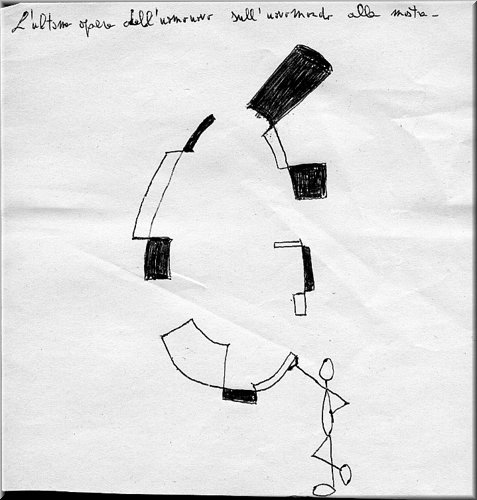 L'ultima opera dell'uomouovo sull'uovomondo alla mostra -